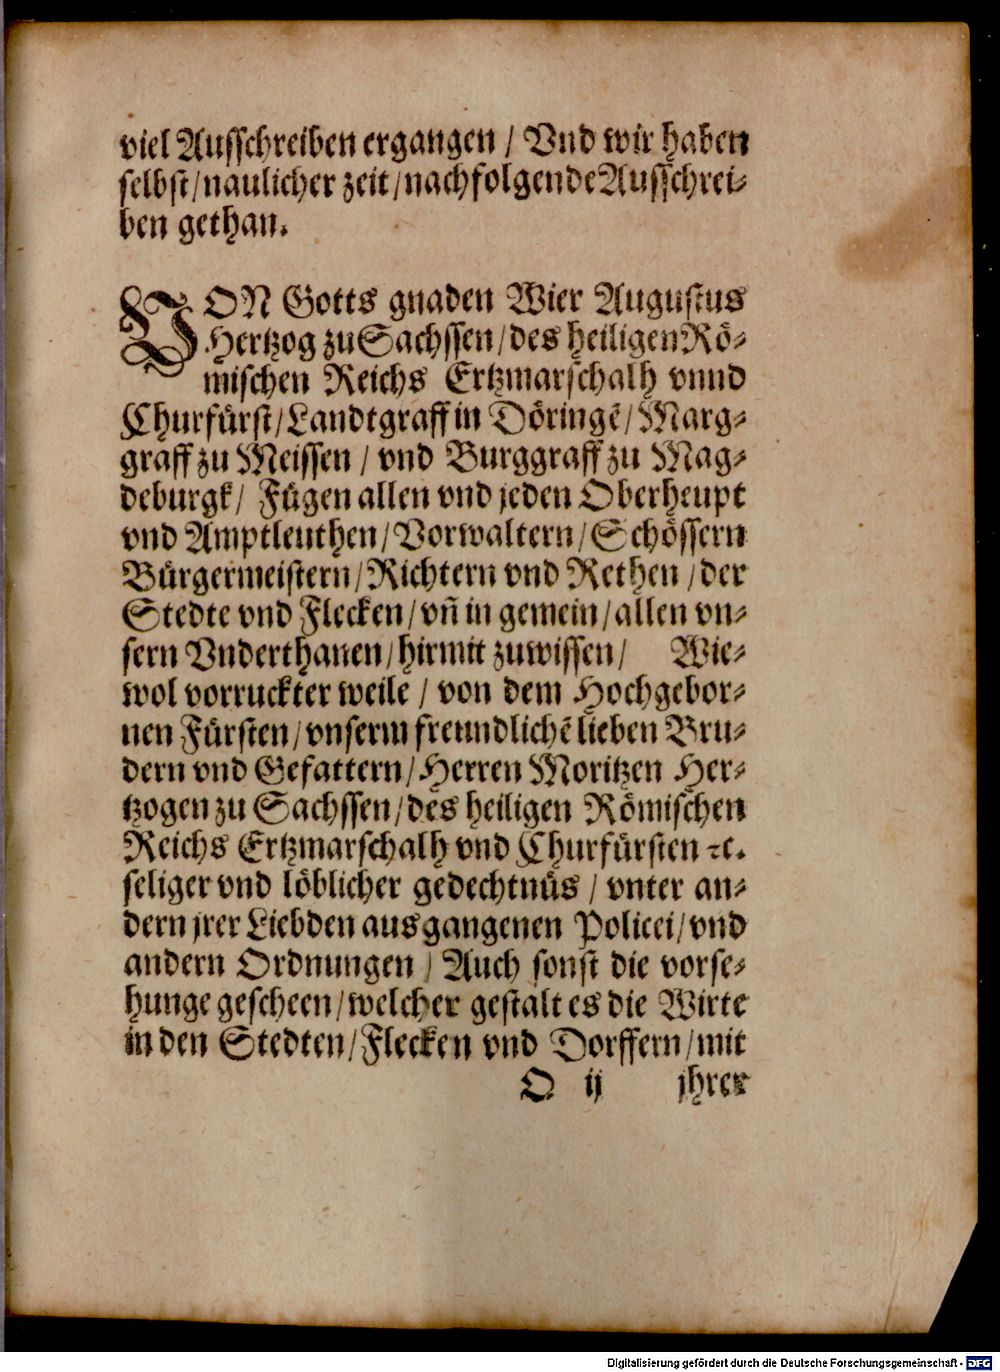 viel Ausschreiben ergangen / Vnd wir haben
selbst/naulicher zeit/nachfolgende Ausschrei⸗
ben gethan.
VON Gotts gnaden Wier Augustus
Hertzog zu Sachssen/des heiligen Rö⸗
mischen Reichs Ertzmarschalh vnnd
Churfürst/Landtgraff in Döringē/Marg⸗
graff zu Meissen / vnd Burggraff zu Mag⸗
deburgk/ Fügen allen vnd jeden Oberheupt
vnd Amptleuthen/Vorwaltern/Schössern
Bürgermeistern/Richtern vnd Rethen /der
Stedte vnd Flecken/vn̄ in gemein/allen vn⸗
sern Vnderthanen/hirmit zuwissen/ Wie⸗
wol vorruckter weile / von dem Hochgebor⸗
nen Fürsten/vnserm freundlichē lieben Bru⸗
dern vnd Gefattern/Herren Moritzen Her⸗
tzogen zu Sachssen/des heiligen Römischen
Reichs Ertzmarschalh vnd Churfürsten ꝛc.
seliger vnd löblicher gedechtnüs / vnter an⸗
dern jrer Liebden ausgangenen Policei/vnd
andern Ordnungen / Auch sonst die vorse⸗
hunge gescheen/welcher gestalt es die Wirte
in den Stedten/Flecken vnd Dorffern/mit
O ij jhrer
Digitalisierung gefördert durch die Deutsche Forschungsgemeinschaft - DFG